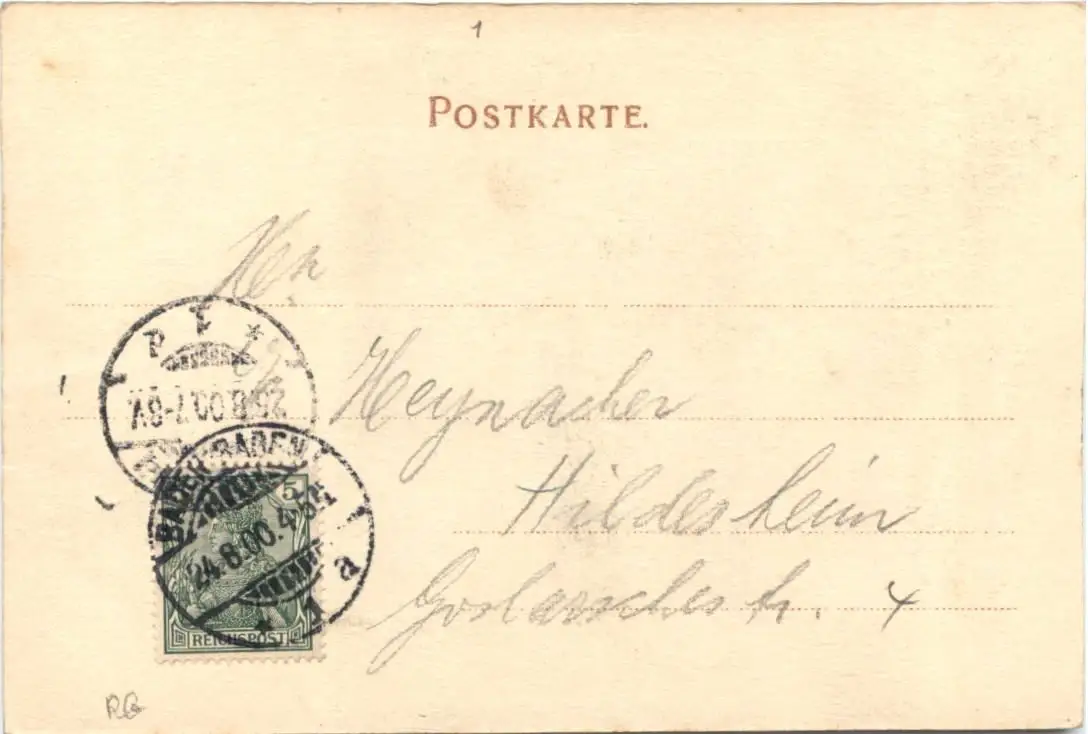 1
POSTKARTE.
Herr
Heynacher
Hildesheim
Goslarschestr. 4
25.8.00. 7-8V.
BADEN-BADEN
24.8.00. 4-5N
1 a
5
REICHSPOST
RG